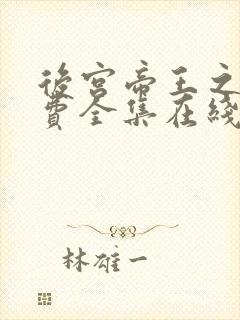 後宮帝王之
費全集在綫
林雄一